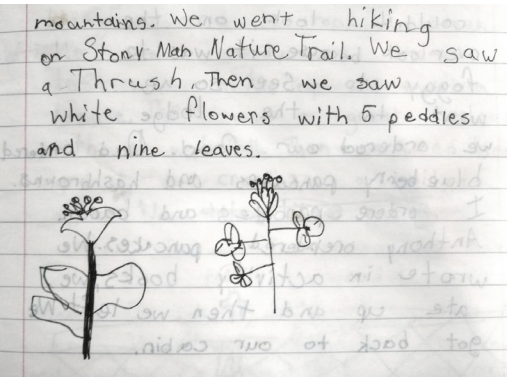 mountains. We went hiking
on Stony Man Nature Trail. We saw
a Thrush. Then we saw
white flowers with 5 peddles
and nine leaves.